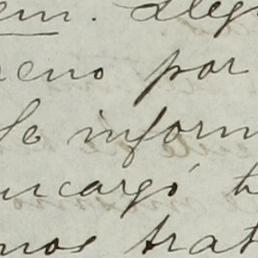 em. Lleg
reno por
le inform
ncargó t
mos trat